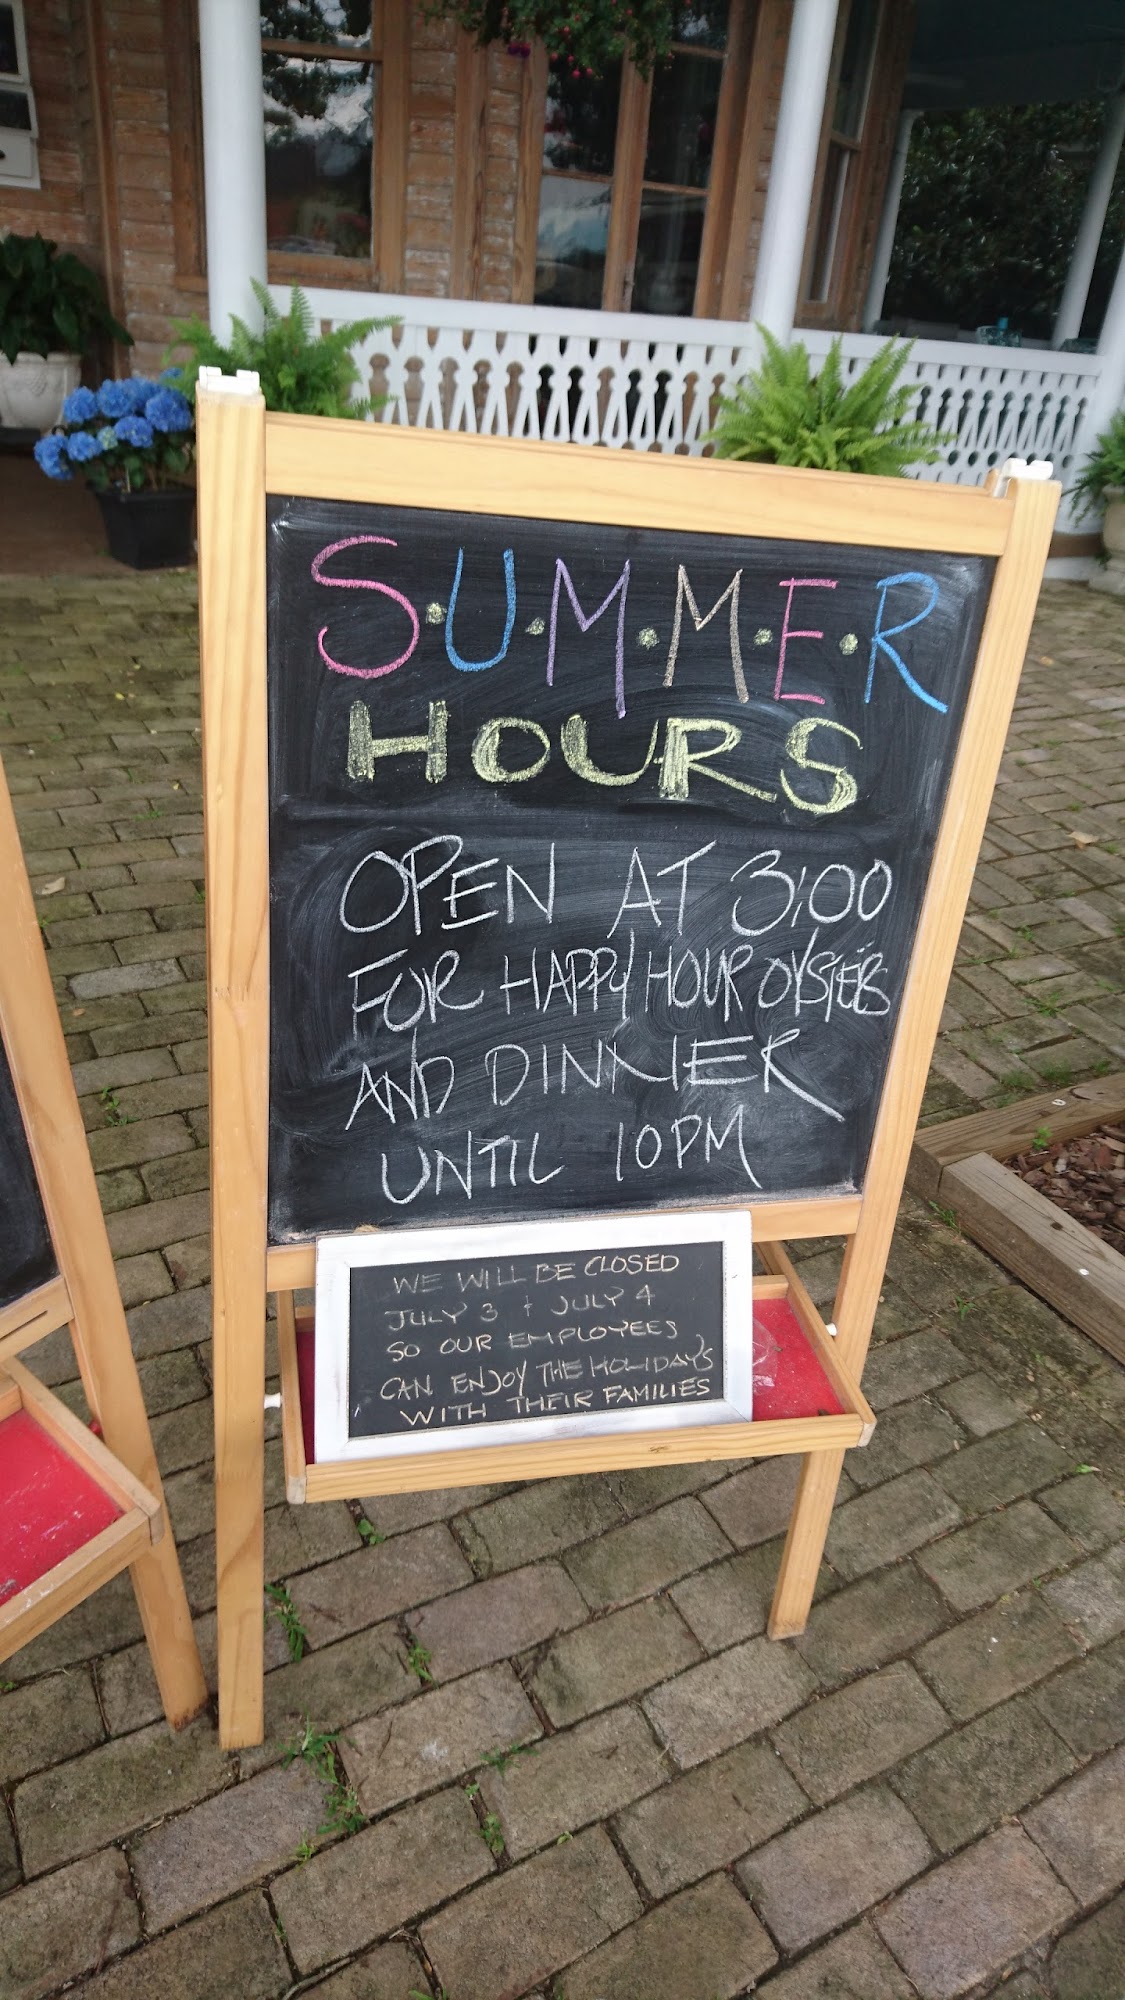 S·U·M·M·E·R
HOURS
OPEN AT 3:00
FOR HAPPY HOUR OYSTERS
AND DINNER
UNTIL 10PM
WE WILL BE CLOSED
JULY 3 + JULY 4
SO OUR EMPLOYEES
CAN ENJOY THE HOLIDAYS
WITH THEIR FAMILIES